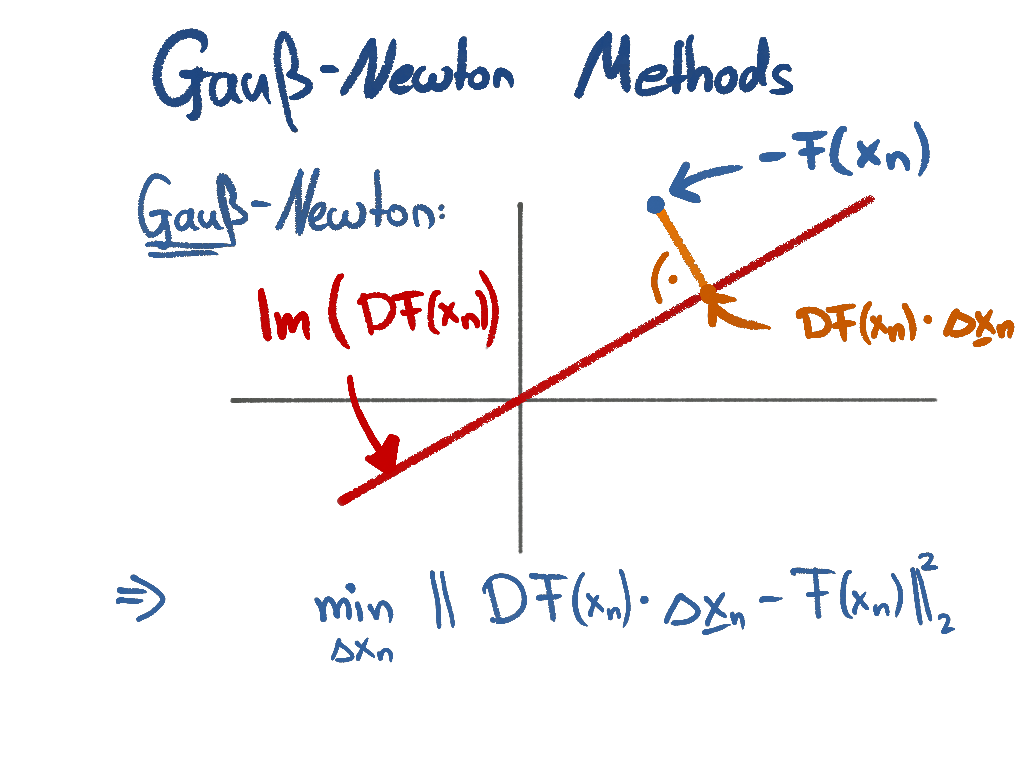 Gauß-Newton Methods
-F(xₙ)
Gauß-Newton:
Im (DF(xₙ))
DF(xₙ) · Δxₙ
⇒ min ‖ DF(xₙ) · Δxₙ - F(xₙ) ‖₂²
Δxₙ